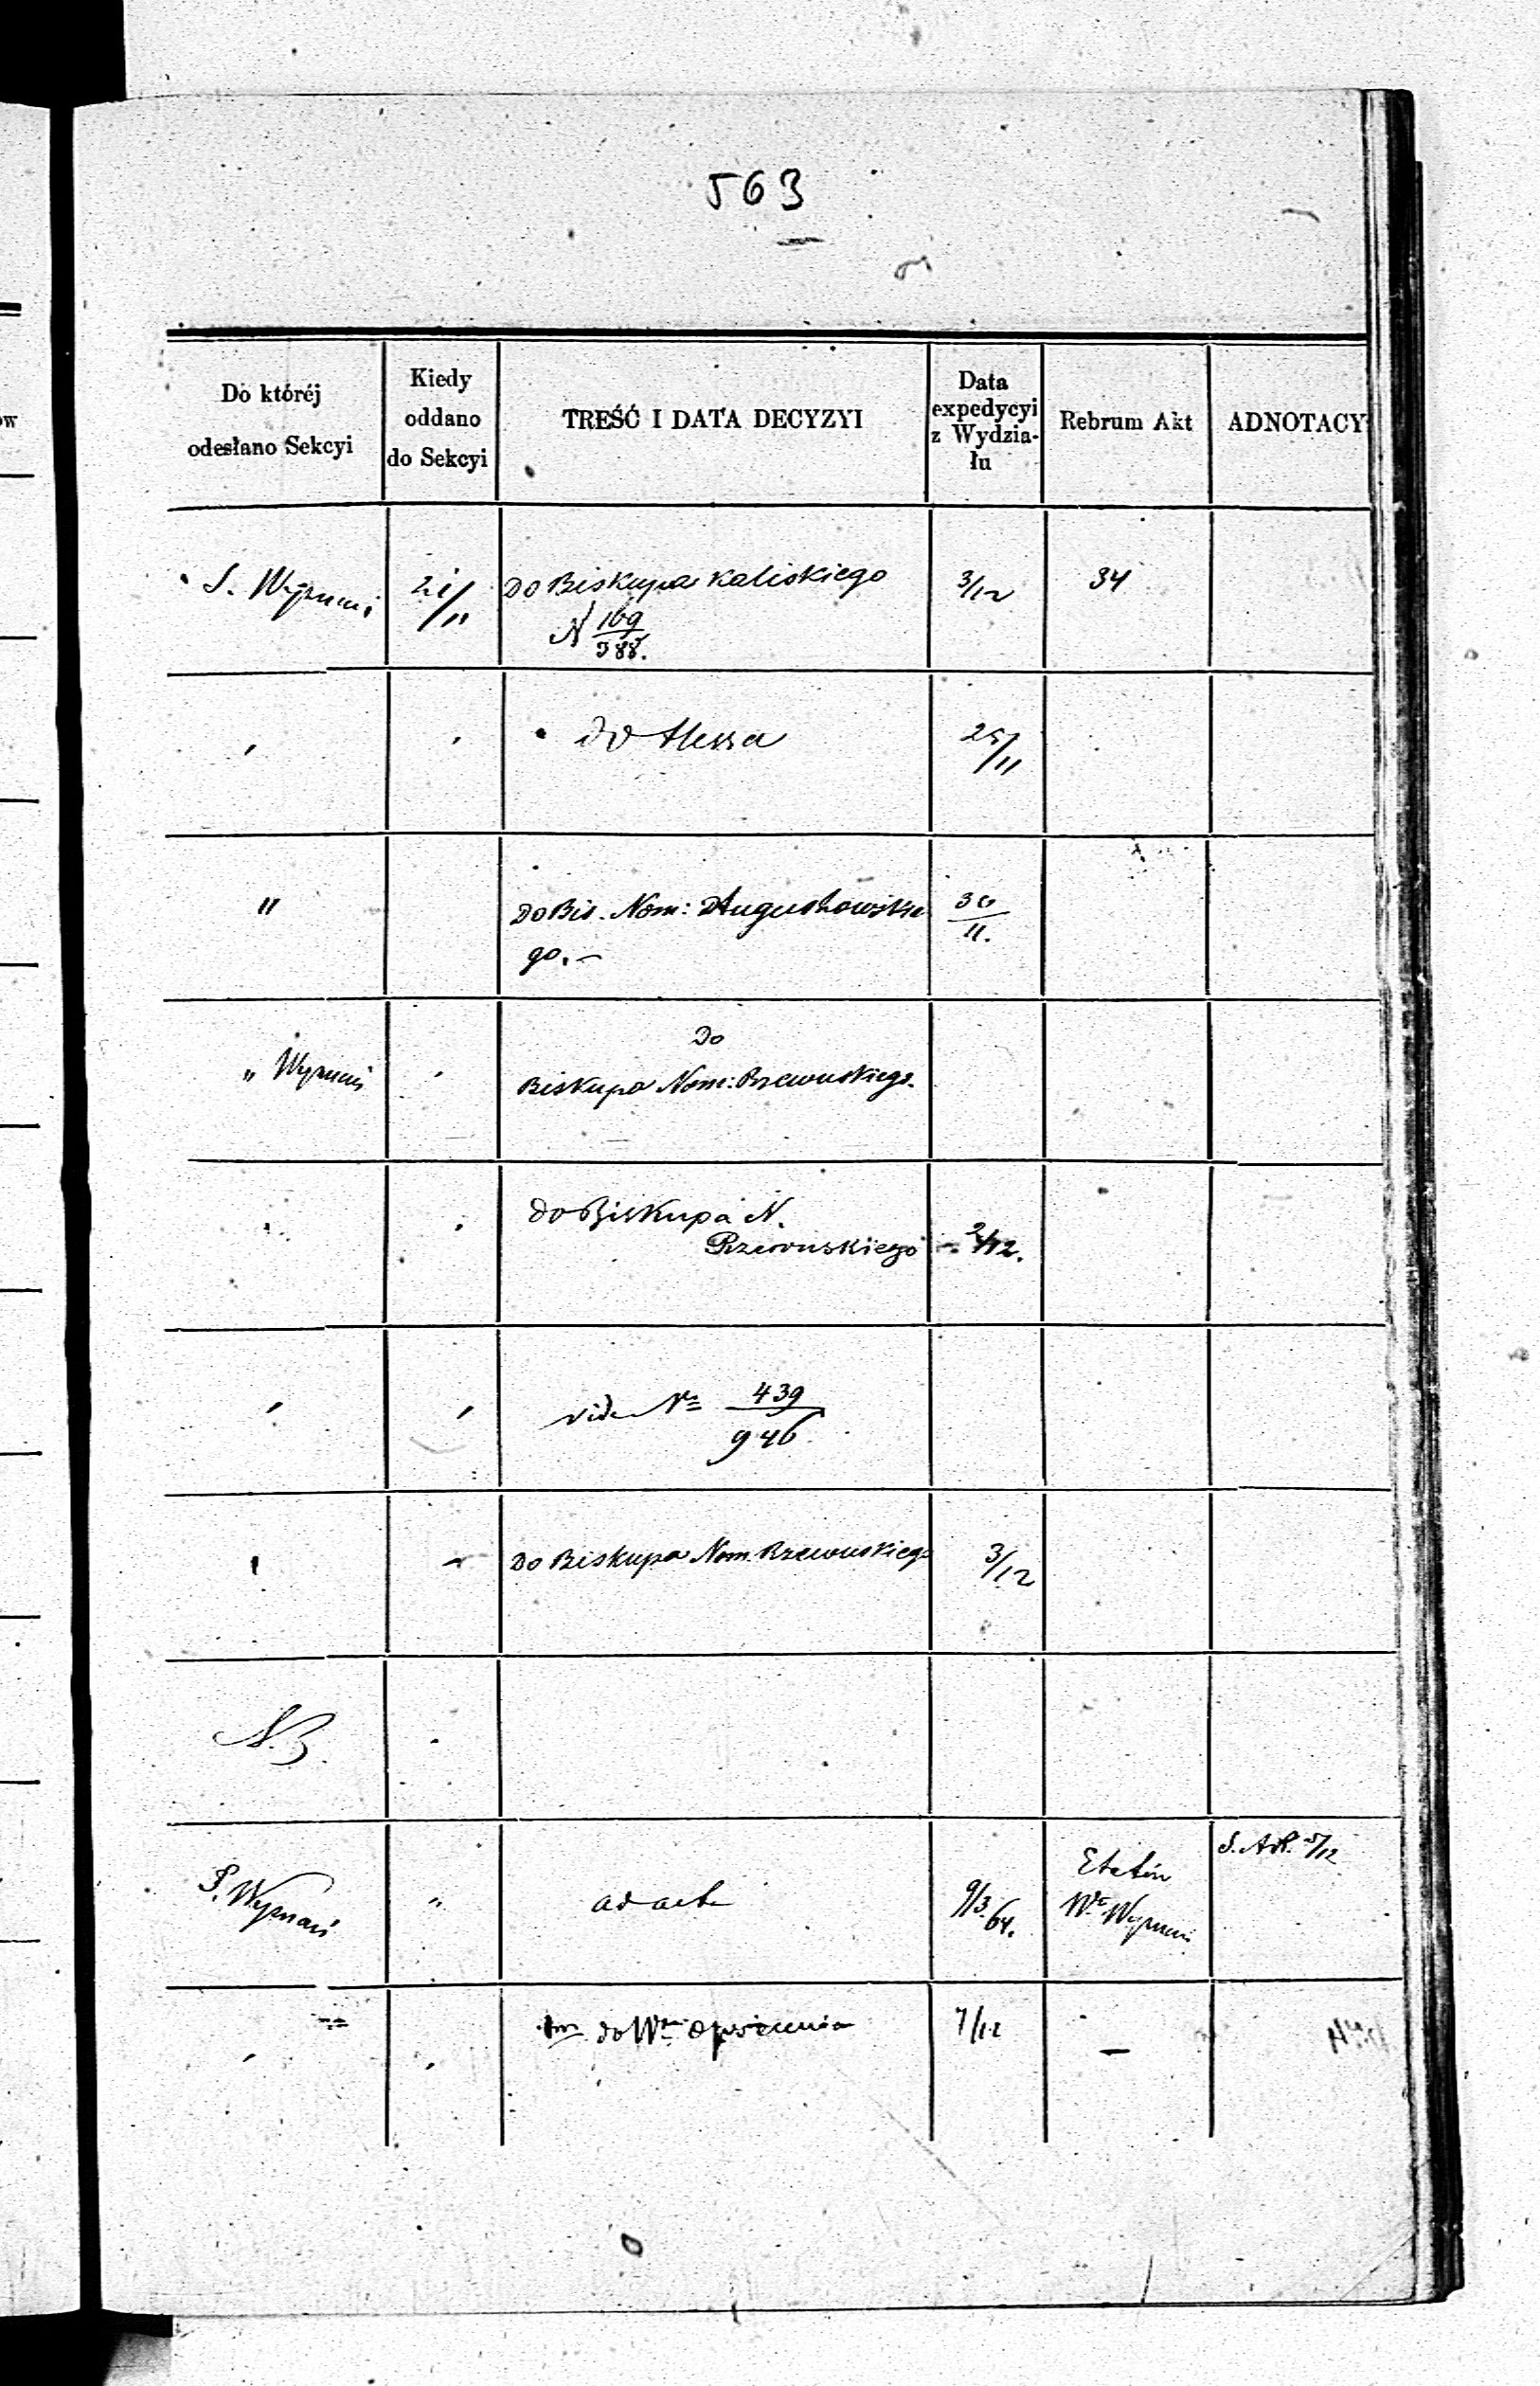 563
Do któréj odesłano Sekcyi
Kiedy oddano do Sekcyi
TREŚĆ I DATA DECYZYI
Data expedycyi z Wydzia-łu
Rebrum Akt
ADNOTACY
S. Wyznań 21/11 Do Biskupa Kaliskiego 3/12 34
N 169/388.
" " do Hessa 25/11
" Do Bis. Nom: Augustowskie 30/11.
go. -
Do
" Wyznań " Biskupa Nom: Rzewuskiego.
" " do Biskupa N.
Rzewuskiego - 2/12.
" " vide No 439/946
" " Do Biskupa Nom. Rzewuskiego 3/12
N.B. "
S. Wyznań " ad acta 9/3 64. Etatów S. Adl. 5/12
Wł Wyznań
" " do Wł Oświecenia 7/12 -